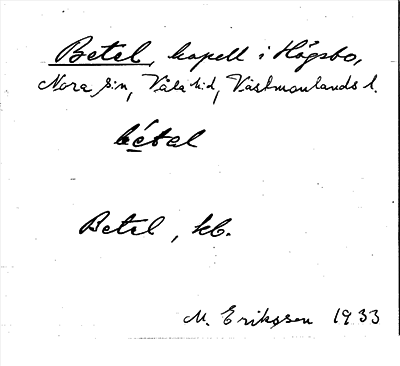 Betel, kapell i Högsbo,
Nora sn, Våla hd, Västmanlands l.
bétel
Betel, kb.
M. Eriksson 1933